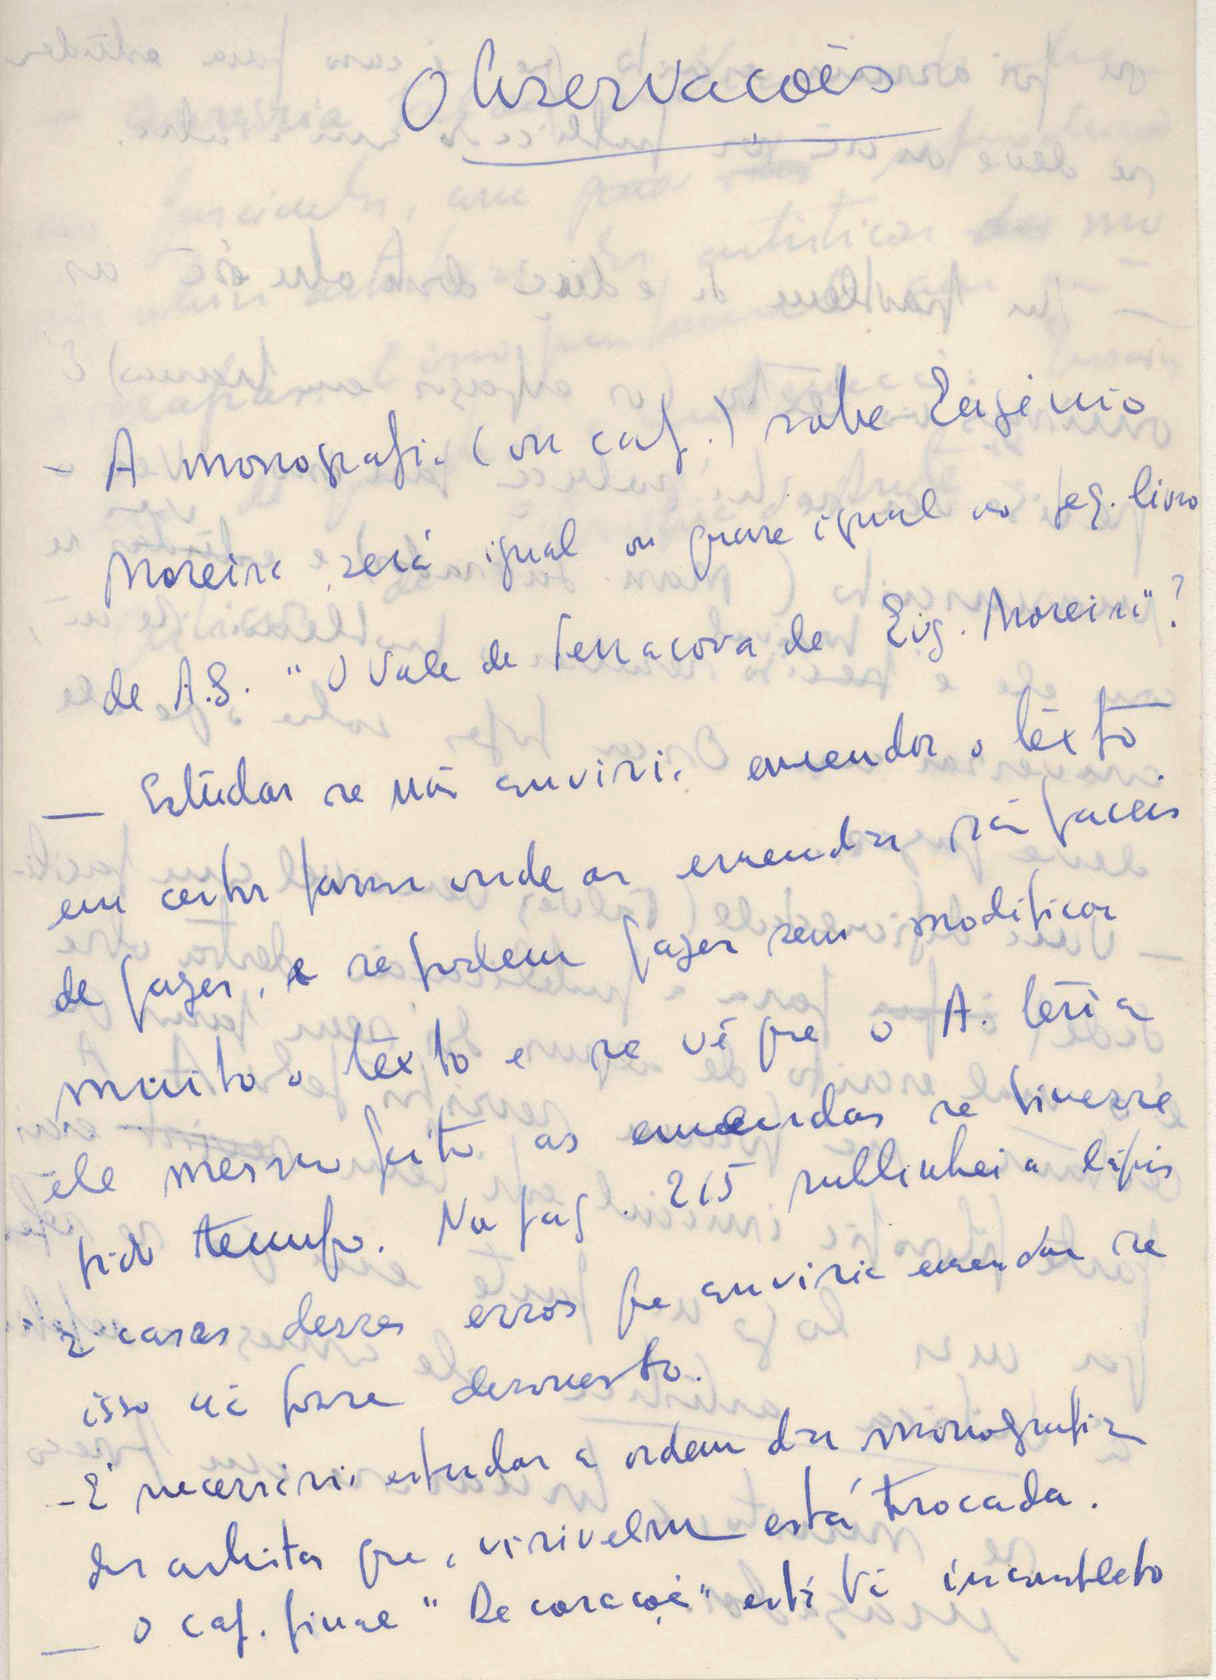 Observações
- A monografia (ou cap.) sobre Eugénio
Moreira será igual ou quase igual ao peq. livro
de A.S. "O Vale de Terracova de Eug. Moreira"?
— Estudar se não conviria emendar o texto
em certos passos onde as emendas são faceis
de fazer, e se podem fazer sem modificar
muito o têxto e se vê que o A. teria
êle mesmo feito as emendas se tivesse
tido tempo. Na pag. 215 sublinhei a lápis
2 casos desses erros que conviria emendar se
isso não fosse desonesto.
- É necessário estudar a ordem das monografias
dos artistas que, visivelm está trocada.
— O cap. final "Decoração" está tão incompleto